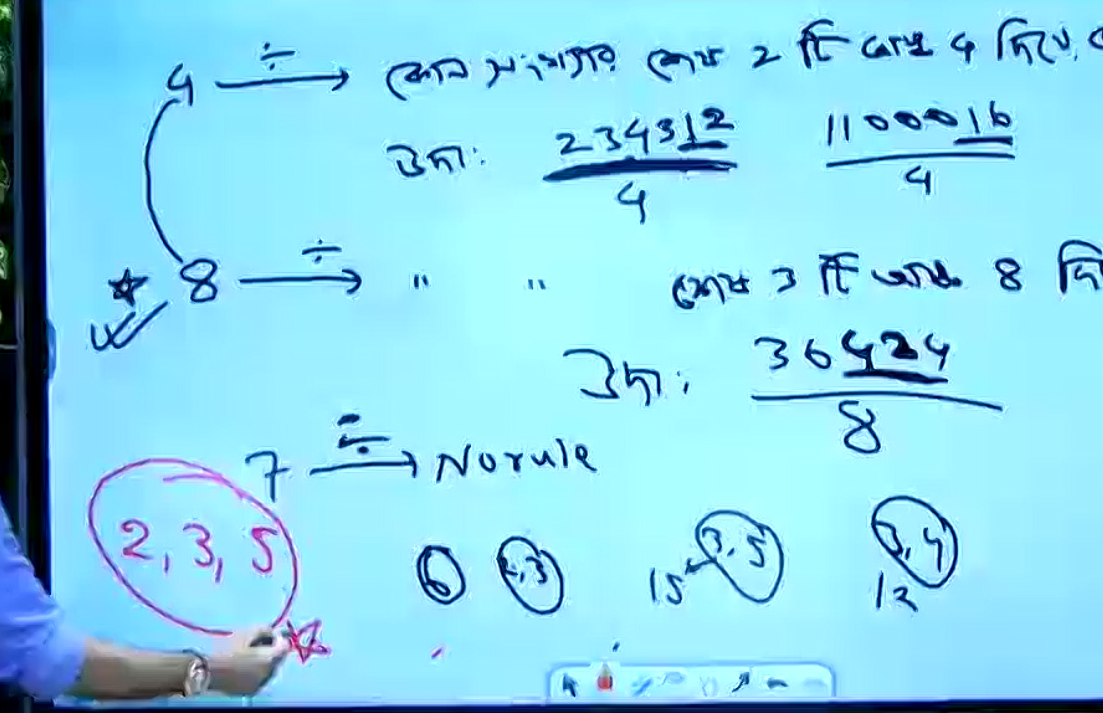 4 ÷ → কোন সংখ্যার শেষ 2 টি অংক 4 দিয়ে
উদা: 234312 / 4 1100016 / 4
8 ÷ → " " শেষ 3 টি অংক 8 দি
উদা: 36424 / 8
7 ÷ → No rule
2, 3, 5 6 2,3 15 3,5 12 3,4